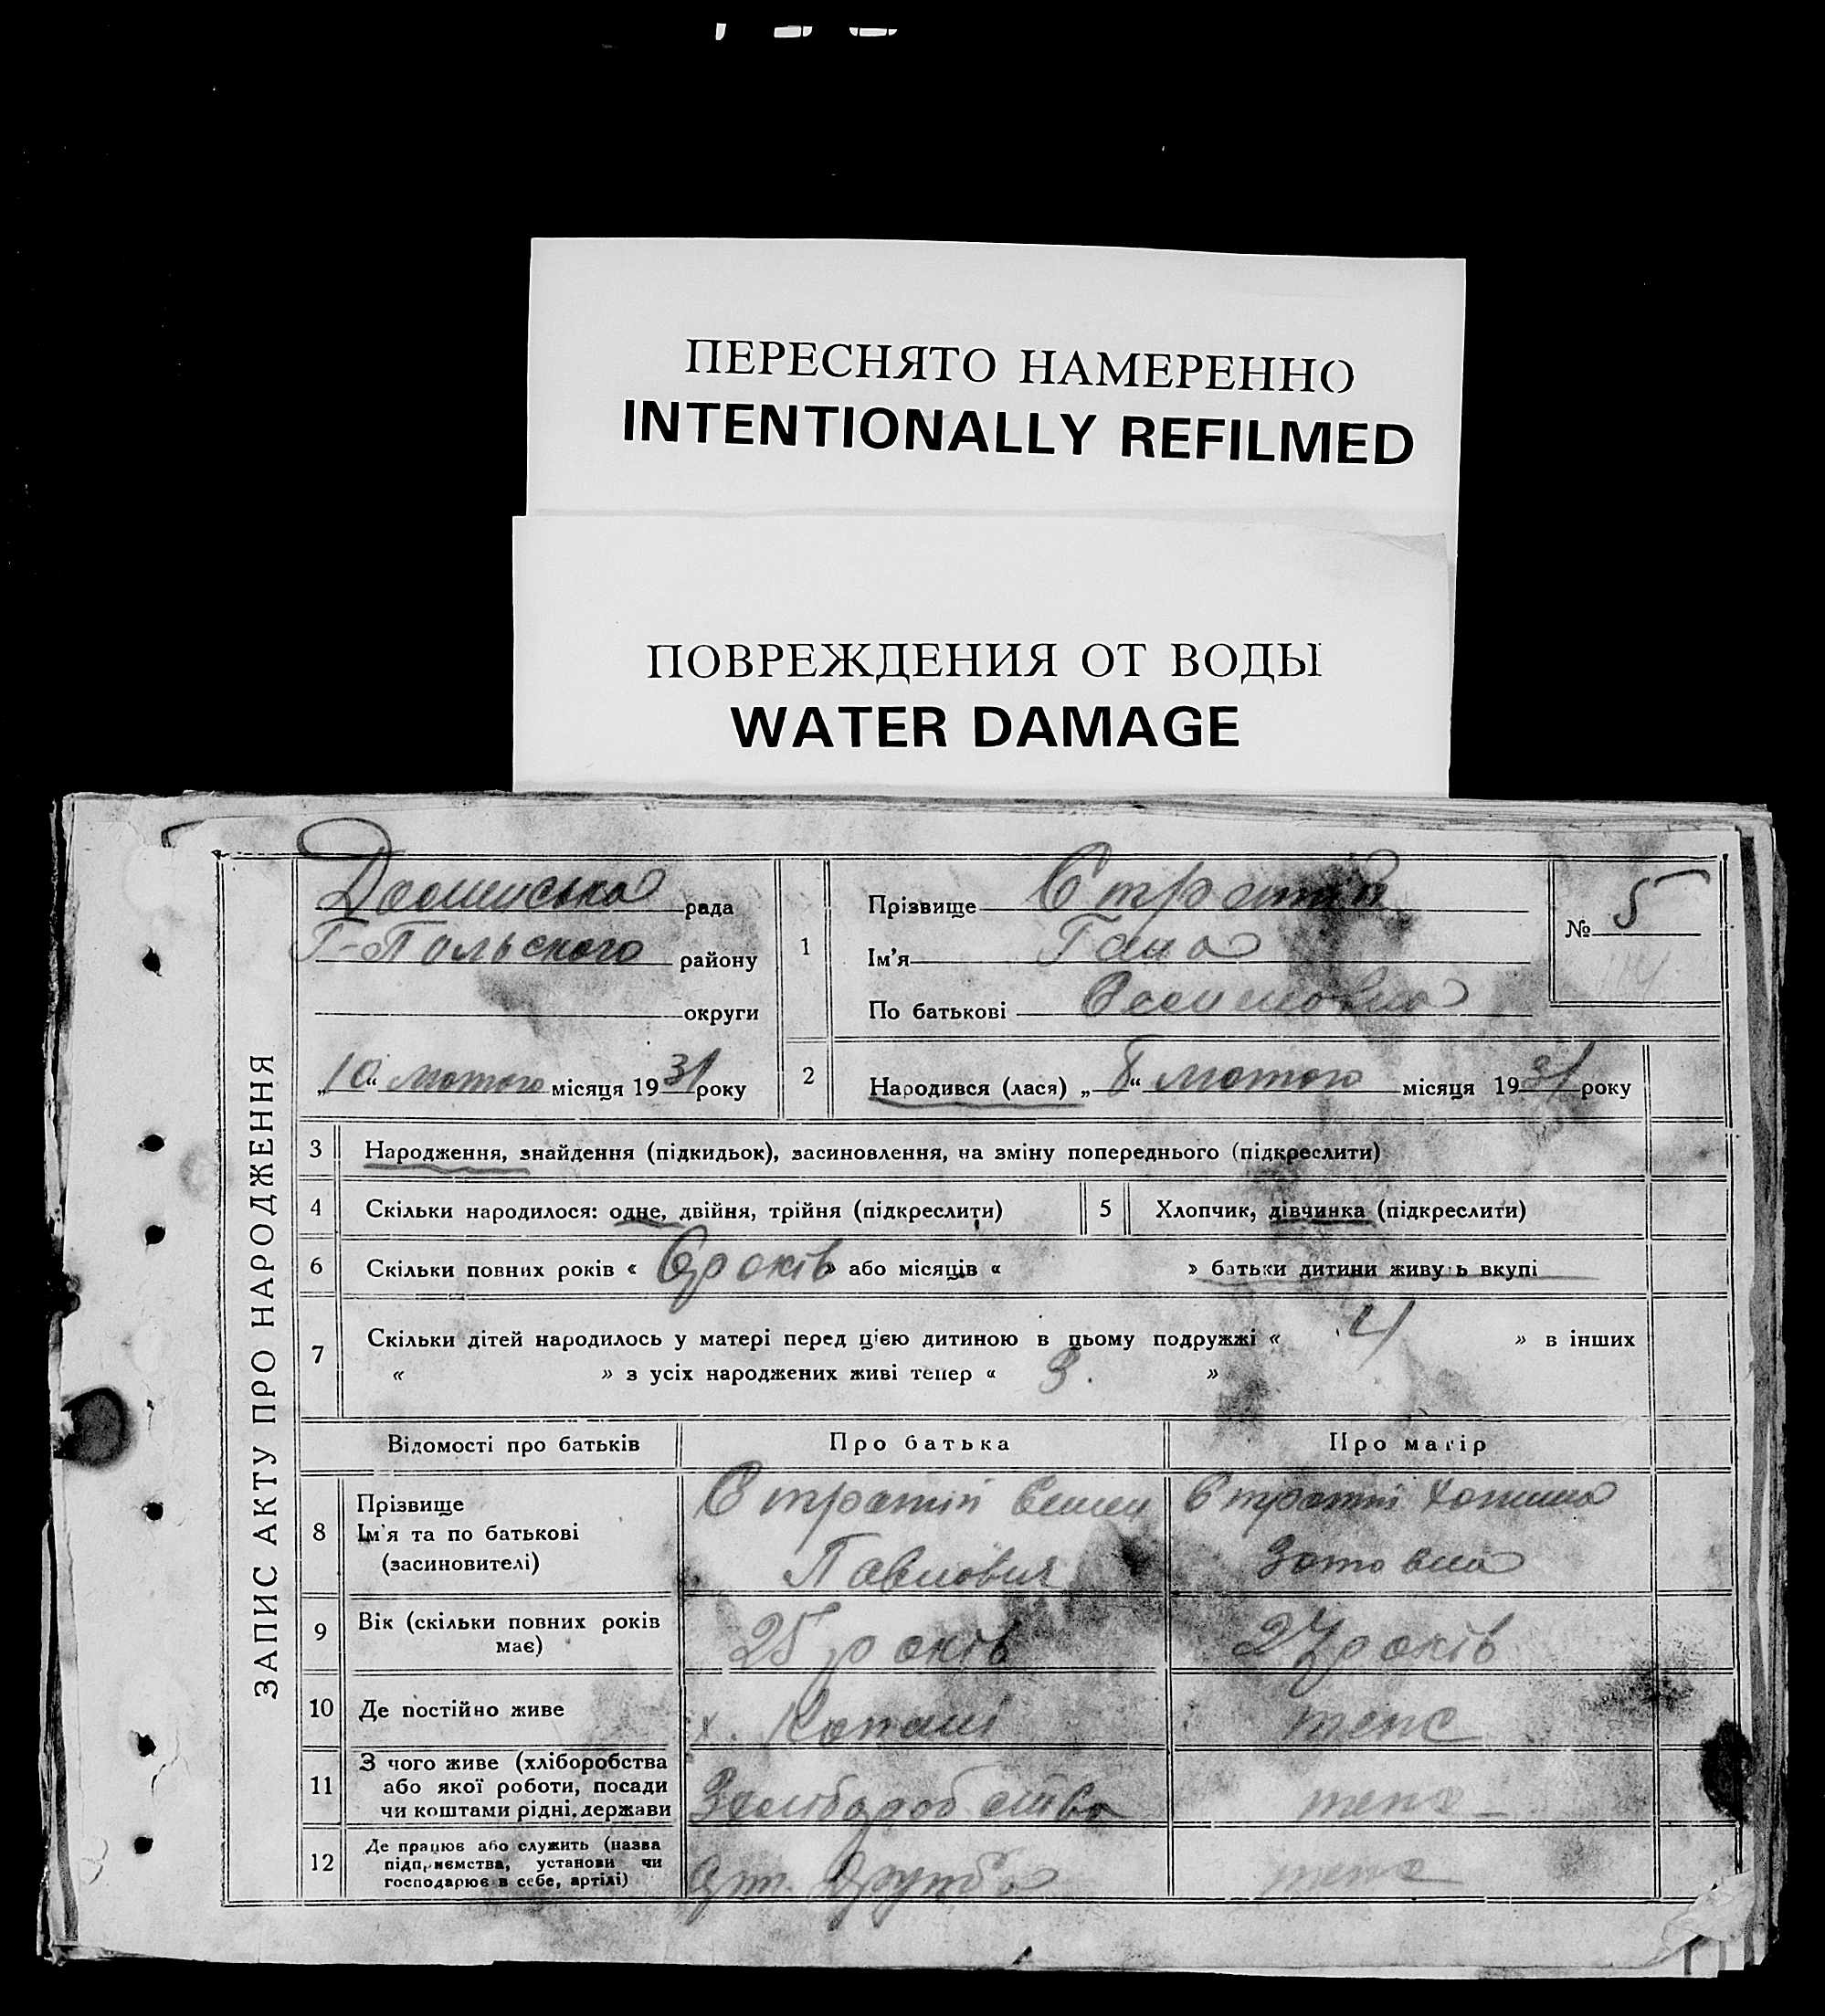 ПЕРЕСНЯТО НАМЕРЕННО
INTENTIONALLY REFILMED
ПОВРЕЖДЕНИЯ ОТ ВОДЫ
WATER DAMAGE
ЗАПИС АКТУ ПРО НАРОДЖЕННЯ
рада
Г-Польского району
округи
„10“ лютого місяця 1931 року
1
Прізвище Стратій
Ім'я Гана
По батькові
№ 5
2
Народився (лася) „8“ лютого місяця 1931 року
3 Народження, знайдення (підкидьок), засиновлення, на зміну попереднього (підкреслити)
4 Скільки народилося: одне, двійня, трійня (підкреслити) 5 Хлопчик, дівчинка (підкреслити)
6 Скільки повних років « 6 років » або місяців « » батьки дитини живуть вкупі
7 Скільки дітей народилось у матері перед цією дитиною в цьому подружжі « 4 » в інших
« » з усіх народжених живі тепер « 3. »
Відомості про батьків Про батька Про матір
8 Прізвище
Ім'я та по батькові
(засиновителі)
Стратій Семен
Павлович
Стратій
Зотовна
9 Вік (скільки повних років
має)
25 років 27 років
10 Де постійно живе х. Копані теж
11 З чого живе (хліборобства
або якої роботи, посади
чи коштами рідні, держави
теж
12 Де працює або служить (назва
підприємства, установи чи
господарює в себе, артілі)
арт. теж